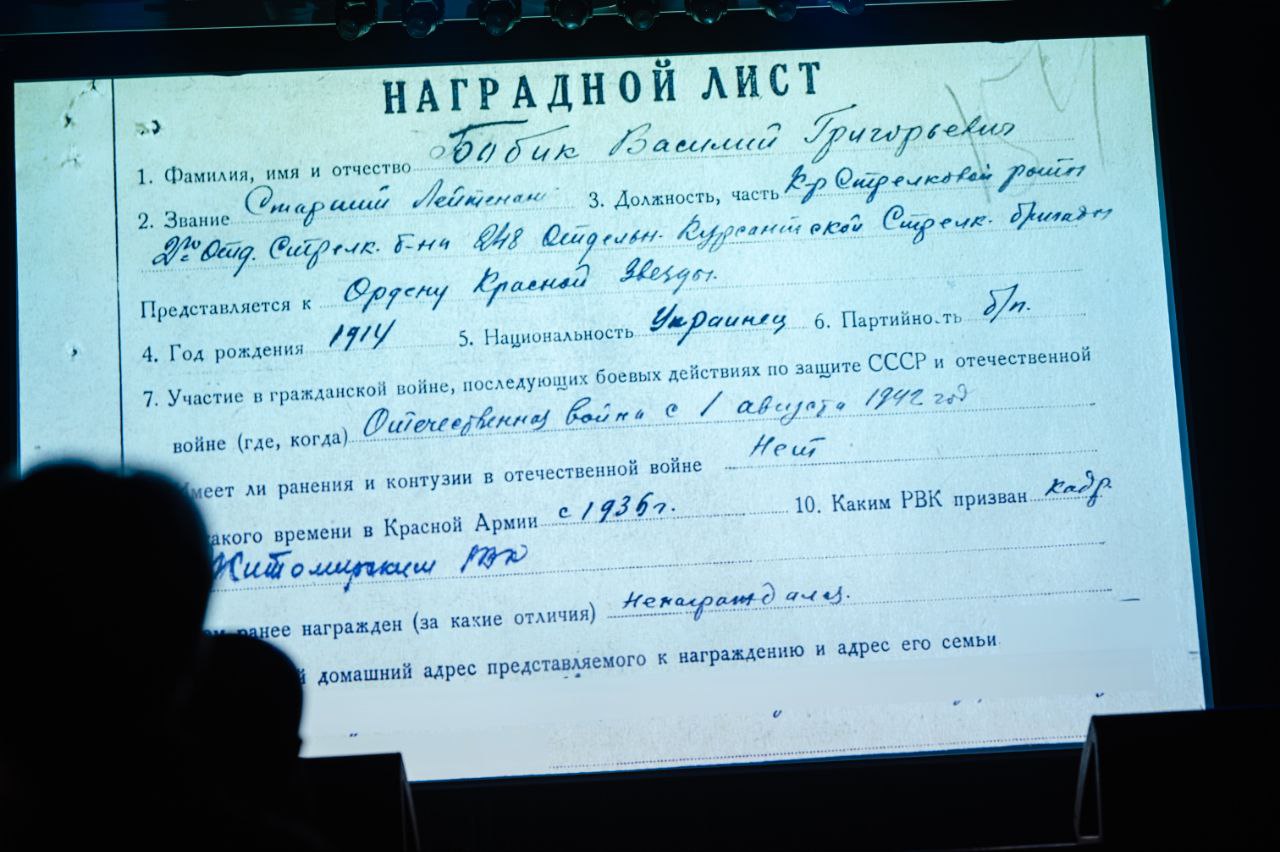 НАГРАДНОЙ ЛИСТ
1. Фамилия, имя и отчество Бабик Василий Григорьевич
2. Звание Старший Лейтенант 3. Должность, часть К-р Стрелковой роты
2го Отд. Стрелк. б-на 248 Отдельн. Курсантской Стрелк. бригады
Представляется к Ордену Красной Звезды.
4. Год рождения 1914 5. Национальность Украинец 6. Партийность б/п.
7. Участие в гражданской войне, последующих боевых действиях по защите СССР и отечественной
войне (где, когда) Отечественная война с 1 августа 1942 год
Имеет ли ранения и контузии в отечественной войне Нет
какого времени в Красной Армии с 1936г. 10. Каким РВК призван кадр.
Житомирским РВК
ранее награжден (за какие отличия) Ненаграждался.
домашний адрес представляемого к награждению и адрес его семьи